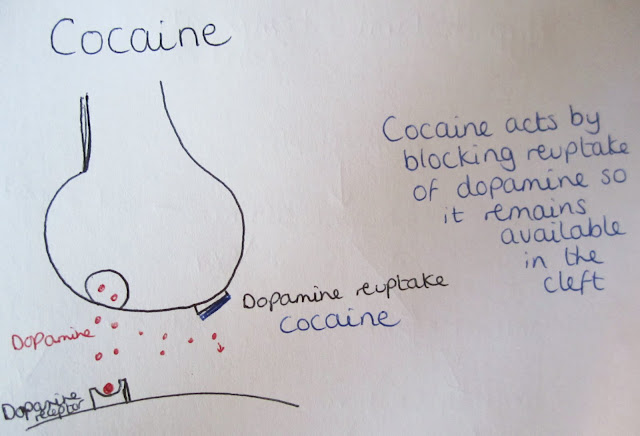 Cocaine
Cocaine acts by
blocking reuptake
of dopamine so
it remains
available
in the
cleft
Dopamine reuptake
cocaine
Dopamine
Dopamine
receptor